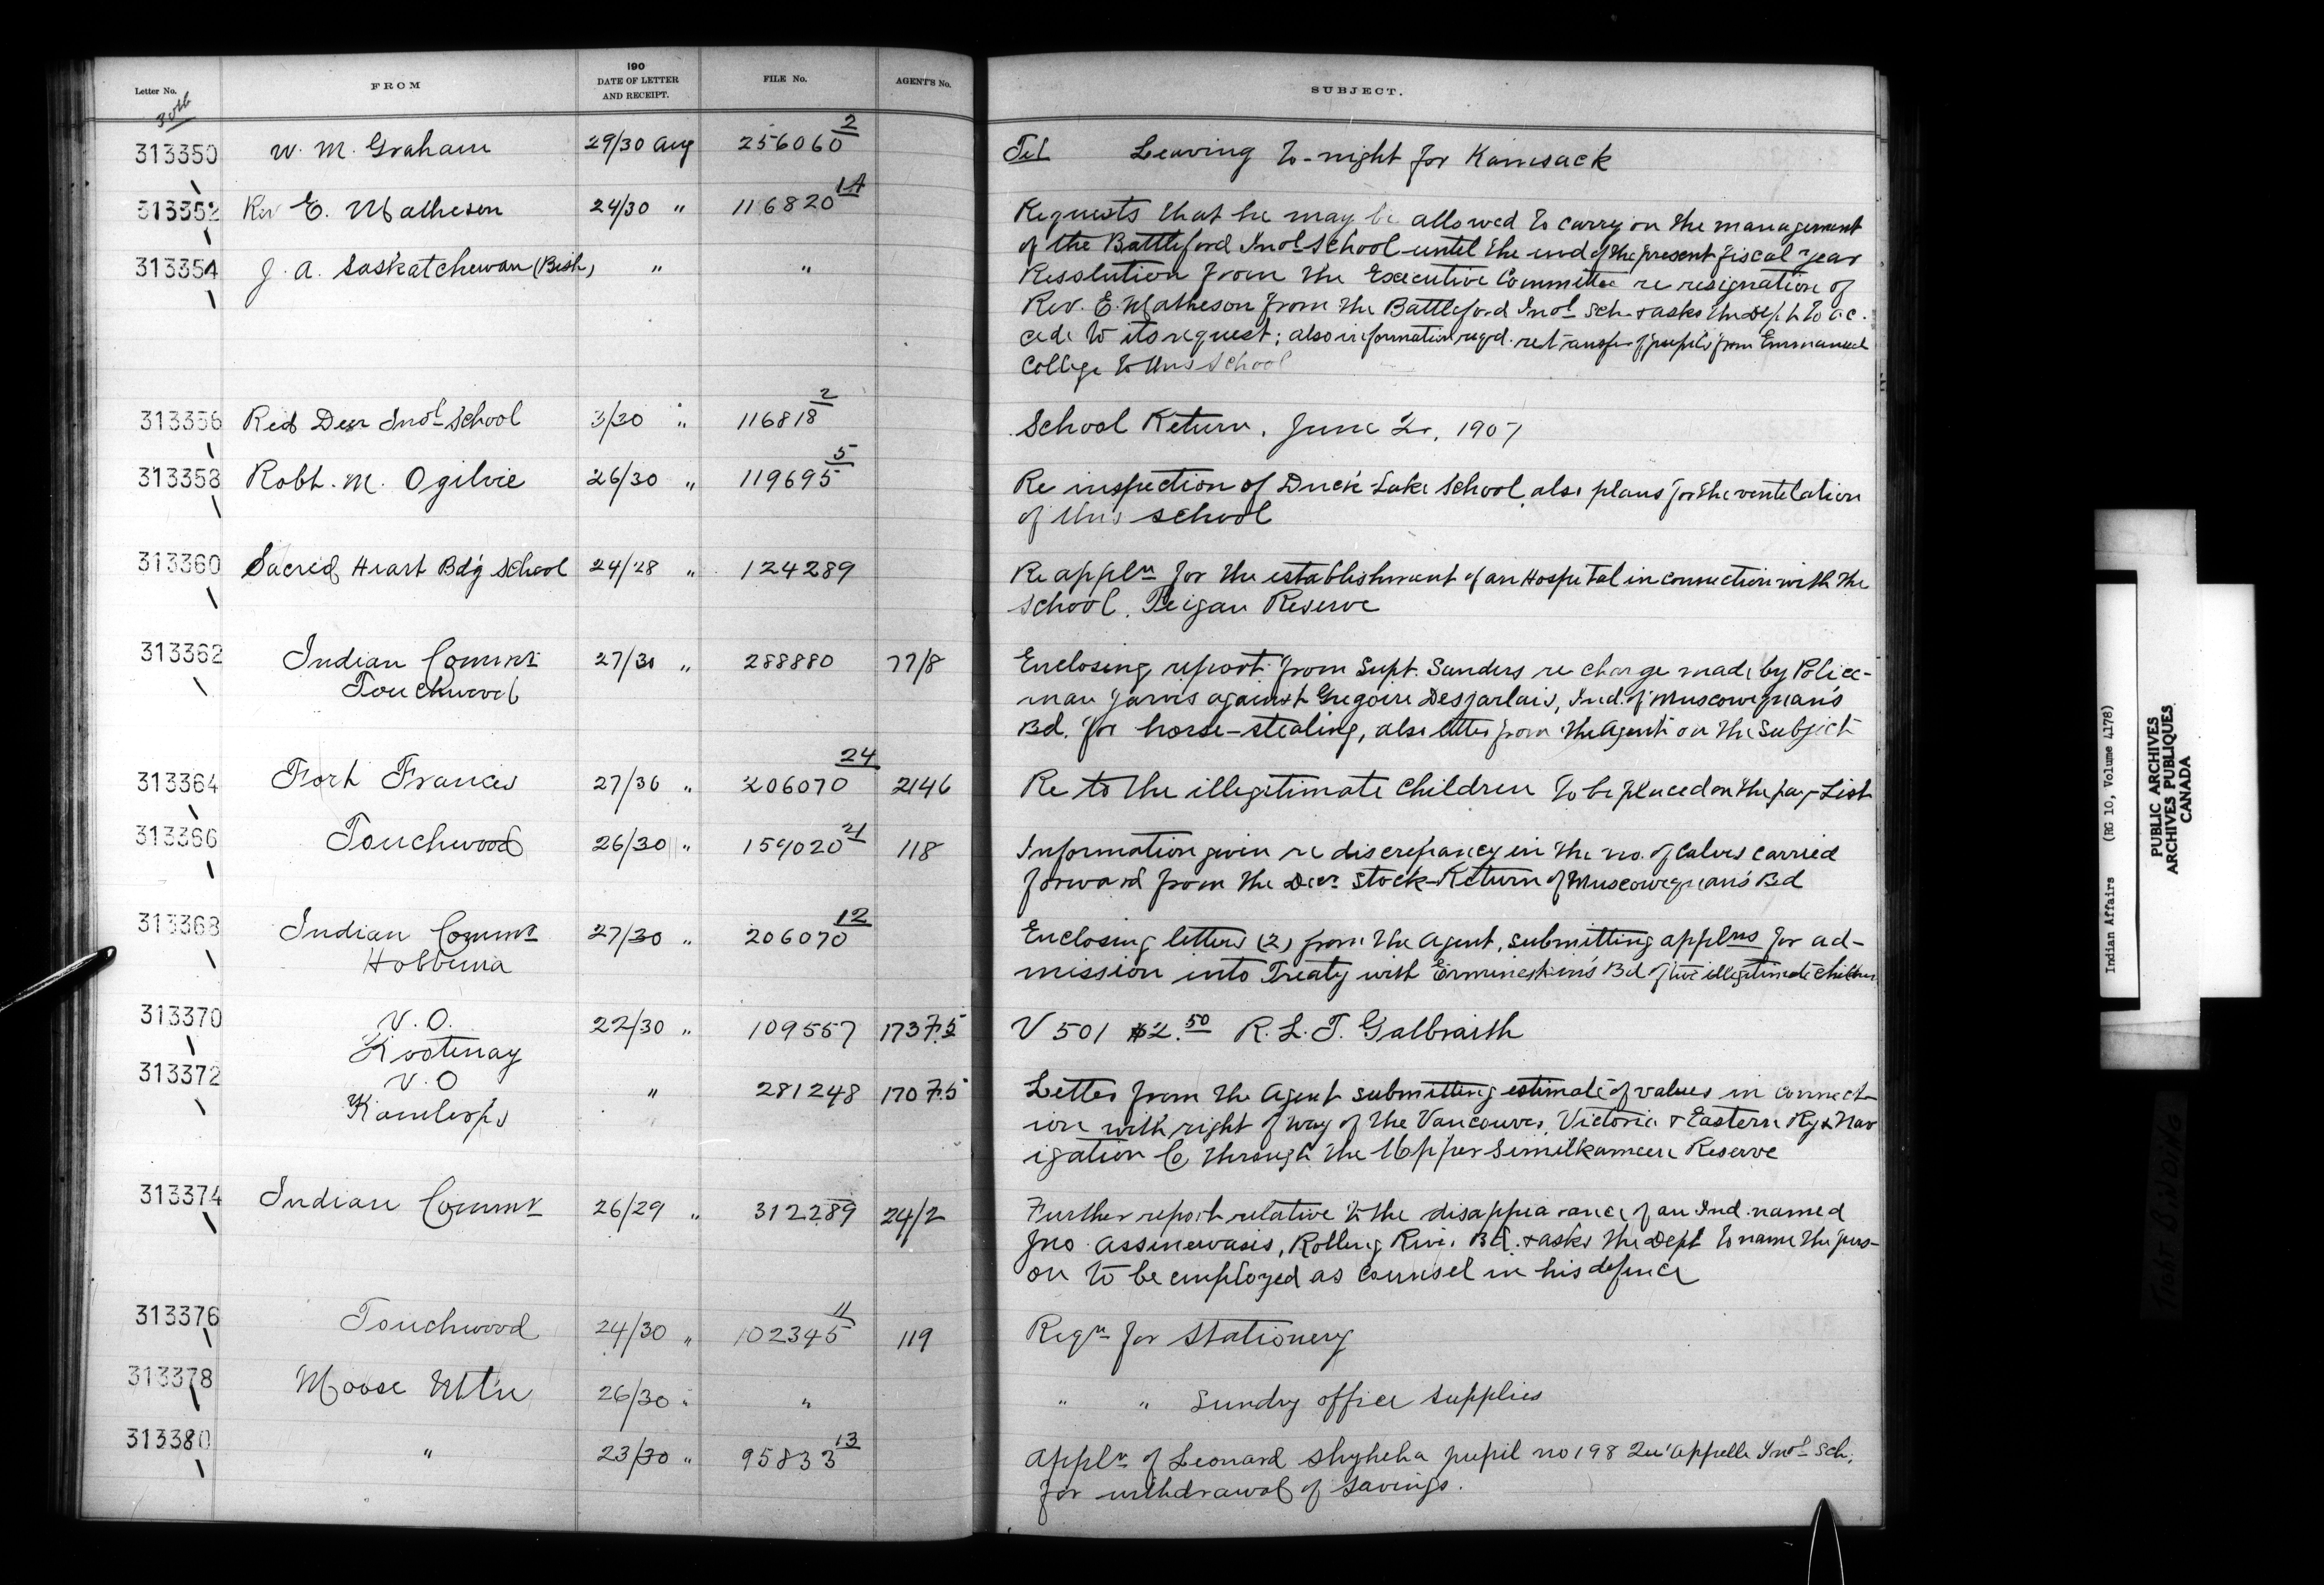 Letter No. FROM 190 DATE OF LETTER AND RECEIPT. FILE No. AGENT'S No. SUBJECT.
30th
313350 W. M. Graham 29/30 Aug 256060 2 Tel Leaving to-night for Kamsack
313352 Rev E. Matheson 24/30 " 116820 1A Requests that he may be allowed to carry on the management
of the Battleford Indl School until the end of the present fiscal year
313354 J. A. Saskatchewan (Bish) " " Resolution from the Executive Committee re resignation of
Rev. E. Matheson from the Battleford Indl Sch. & asks the Dept to ac.
cede to its request; also information reqd. re transfer of pupils from Emmanuel
College to this School
313356 Red Deer Indl School 3/30 " 116818 2 School Return, June 2r, 1907
313358 Robt. M. Ogilvie 26/30 " 119695 5 Re inspection of Duck Lake School, also plans for the ventilation
of this school
313360 Sacred Heart Bdg School 24/28 " 124289 Re appln for the establishment of an Hospital in connection with the
School, Peigan Reserve
313362 Indian Commr 27/30 " 288880 77/8 Enclosing report from Supt. Sanders re charge made by Police-
Touchwood man Jarvis against Gregoire Desjarlais, Ind. of Muscowequan's
Bd. for horse-stealing, also letter from the Agent on the subject
313364 Fort Frances 27/30 " 206070 24 2146 Re to the illegitimate children to be placed on the pay-List
313366 Touchwood 26/30 " 159020 21 118 Information given re discrepancy in the no. of calves carried
forward from the Decr Stock-Return of Muscowequan's Bd
313368 Indian Commr 27/30 " 206070 12 Enclosing letters (2) from the Agent, submitting applns for ad-
Hobbema mission into Treaty with Ermineskin's Bd of five illegitimate children
313370 V. O. 22/30 " 109557 1737.5 V 501 $2.50 R. L. T. Galbraith
Kootenay
313372 V. O " 281248 1707.5 Letter from the Agent submitting estimate of values in connect-
Kamloops ion with right of way of the Vancouver, Victoria & Eastern Ry & Nav
igation Co through the Upper Similkameen Reserve
313374 Indian Commr 26/29 " 312289 24/2 Further report relative to the disappearance of an Ind. named
Jno Assinewasis, Rolling River Bd. & asks the Dept to name the pers-
on to be employed as counsel in his defence
313376 Touchwood 24/30 " 102345 11 119 Reqn for Stationery
313378 Moose Mtn 26/30 " " " " Sundry office supplies
313380 " 23/30 " 95833 13 Appln of Leonard Shyheha pupil no 198 Qu'Appelle Indl Sch.
for withdrawal of savings.
Indian Affairs (RG 10, Volume 4178)
PUBLIC ARCHIVES
ARCHIVES PUBLIQUES
CANADA